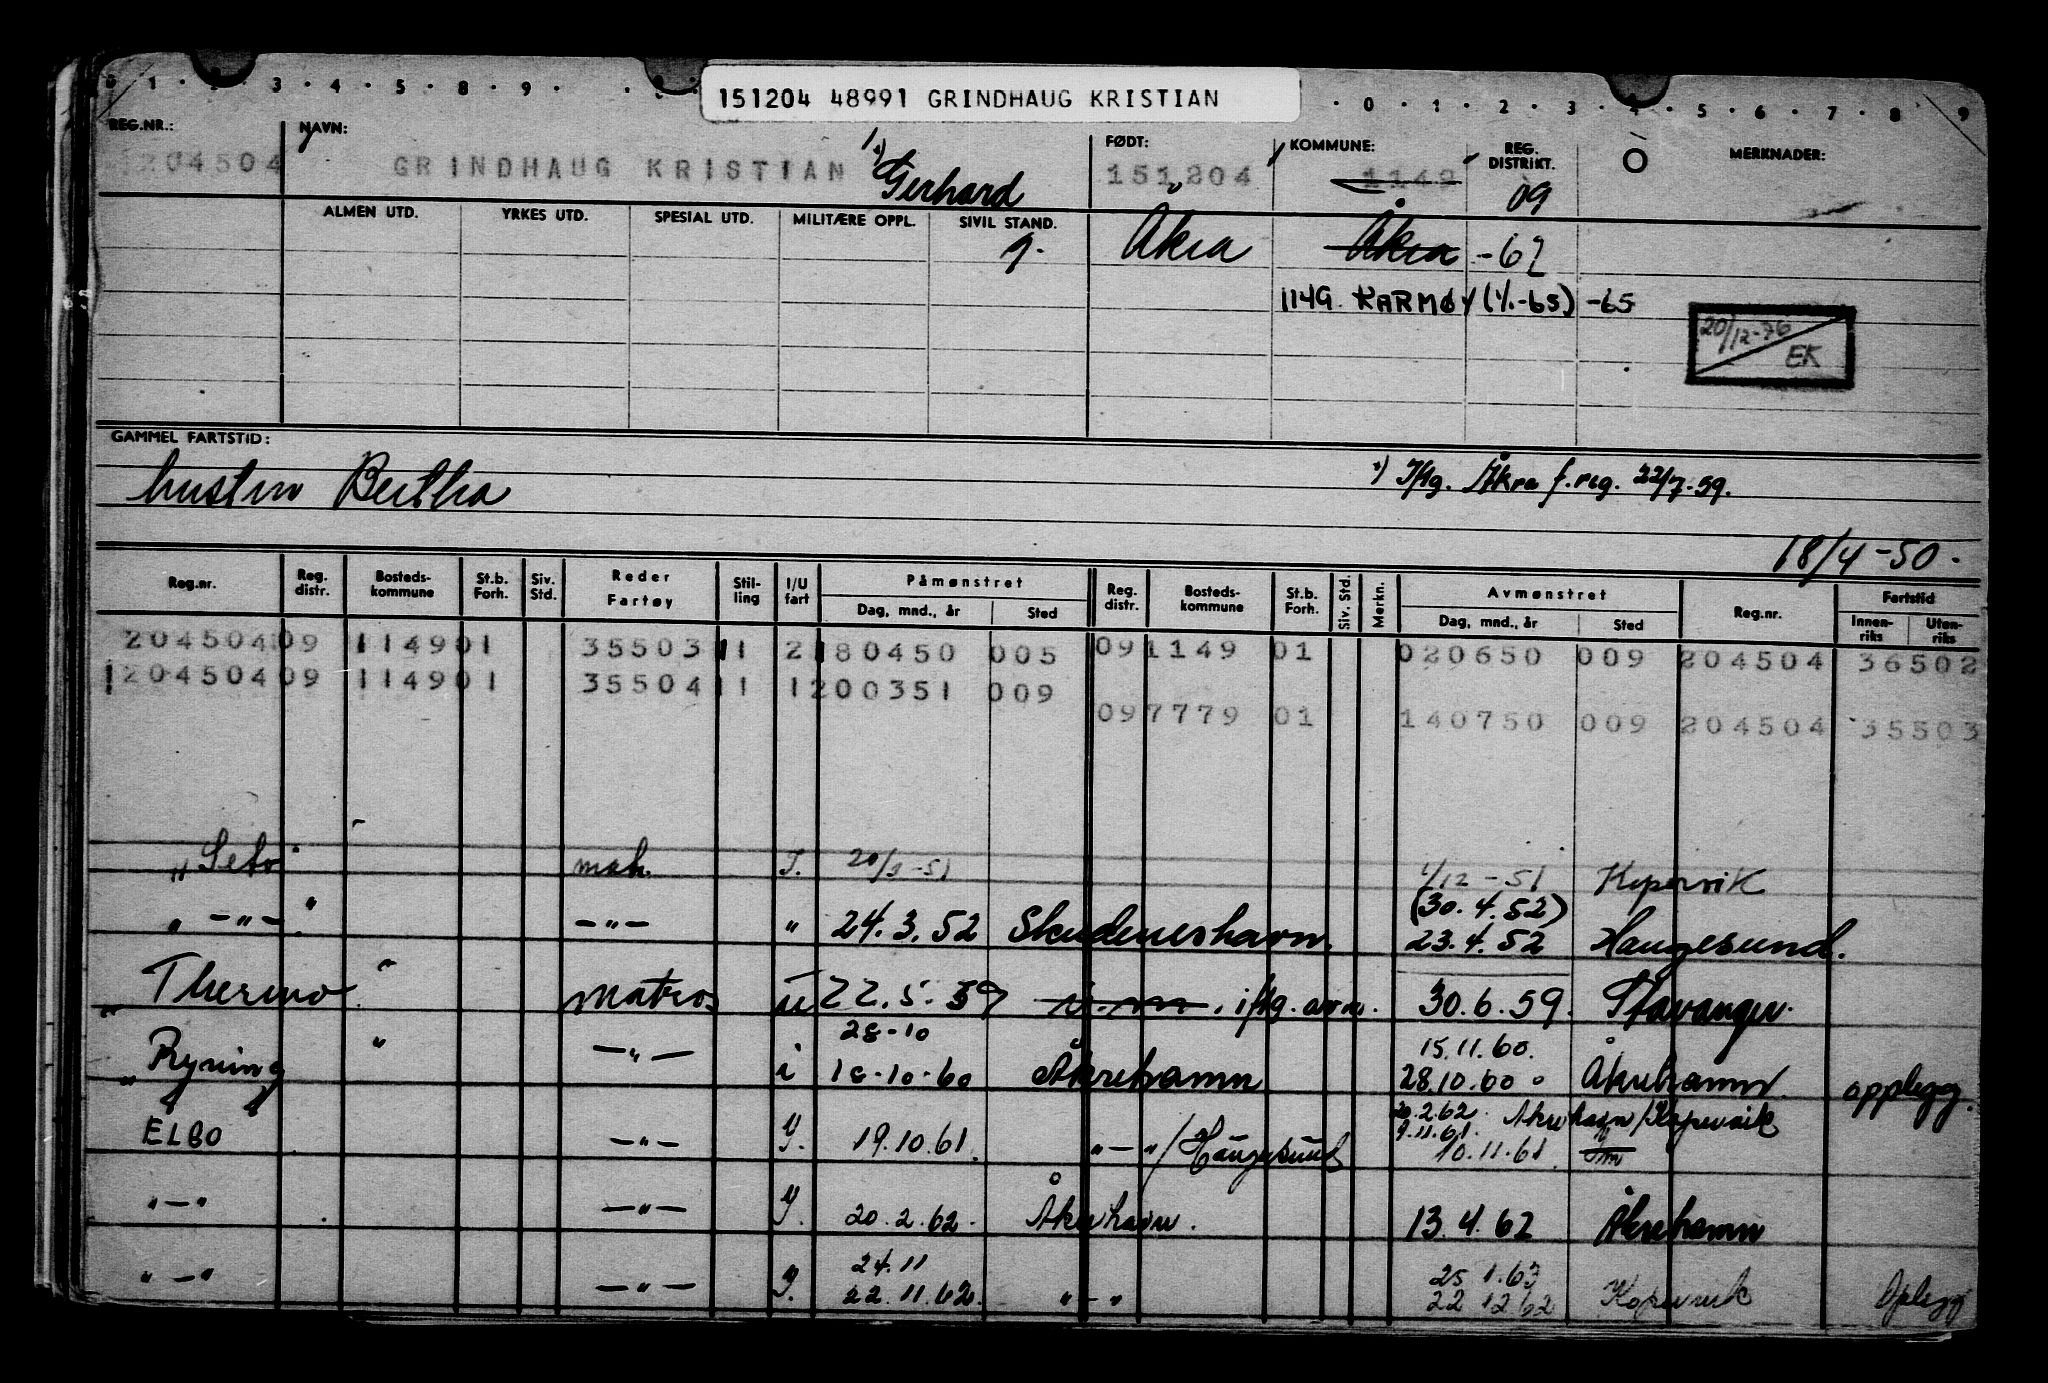 0 1 2 3 4 5 8 9 0 1 2 3 4 5 6 7 8 9
151204 48991 GRINDHAUG KRISTIAN
REG.NR.: NAVN: FØDT: KOMMUNE: REG. DISTRIKT. O MERKNADER:
204504 GRINDHAUG KRISTIAN 1) Gerhard 151204 1149 09
ALMEN UTD. YRKES UTD. SPESIAL UTD. MILITÆRE OPPL. SIVIL STAND.
g. Åkra Åkra -62
1149 KARMØY (1/1-65) -65
20/12-76
EK
GAMMEL FARTSTID:
hustru Bertha
1) Iflg. Åkra f.reg. 22/7-59.
18/4-50.
Reg.nr. Reg. distr. Bosteds-kommune St.b. Forh. Siv. Std. Reder Fartøy Stil-ling I/U fart Påmønstret Dag, mnd., år Sted Reg. distr. Bosteds-kommune St.b. Forh. Siv. Std. Merkn. Avmønstret Dag, mnd., år Sted Reg.nr. Fartstid Innen-riks Uten-riks
204504 09 1149 01 35503 11 2 180450 005 09 1149 01 020650 009 204504 36502
1204504 09 1149 01 35504 11 1 200351 009
09 7779 01 140750 009 204504 35503
matr. I. 1/12-51 Kopervik
(30.4.52)
" -"- " -"- " 24.3.52 Skudeneshavn 23.4.52 Haugesund.
" Thermo " matros u 22.5.59 iflg. avm. 30.6.59. Stavanger.
28-10 15.11.60.
" Ryning " -"- i 18-10-60 Åkrehamn 28.10.60 Åkrehamn opplegg.
20.2.62. Åkrehavn/Kopervik
9.11.61.
ELBO -"- I. 19.10.61. "-"/Haugesund 10.11.61.
"-" -"- I. 20.2.62. Åkrehavn. 13.4.62 Åkrehamn
24.11 25 1.63
"-" -"- I. 22.11.62. "-" 22 12 62 Kopervik Oplegg